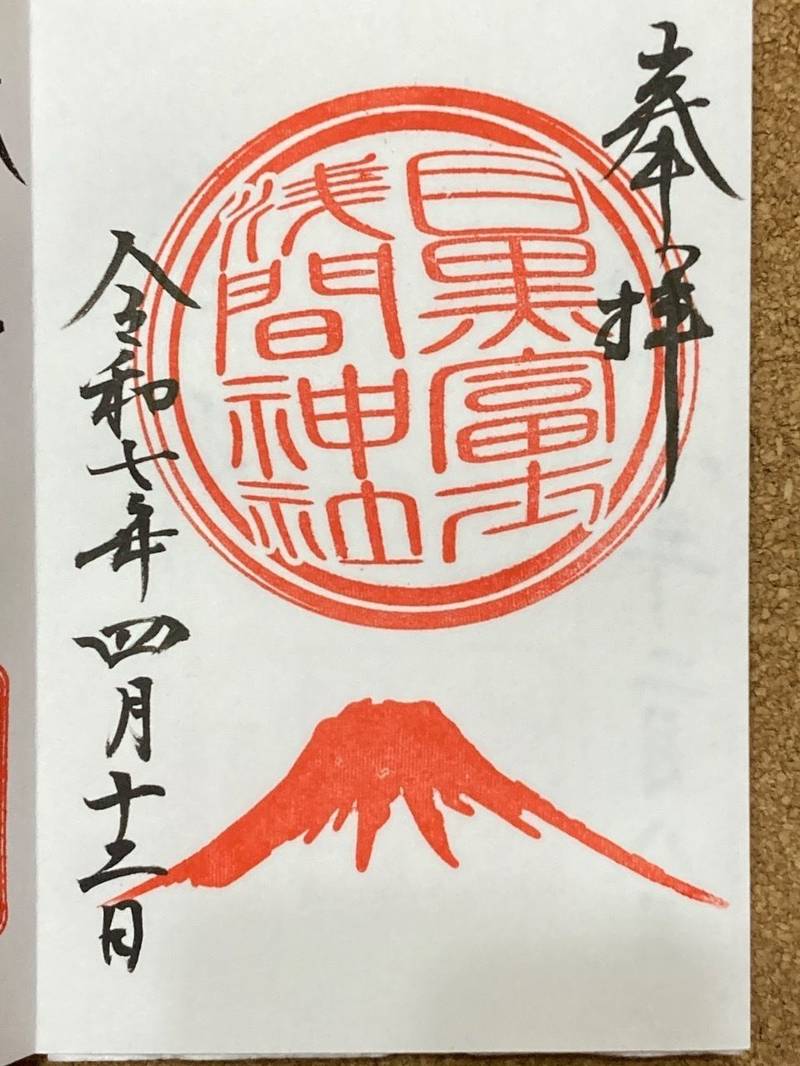 奉拝
目黒富士
浅間神社
令和七年四月十二日